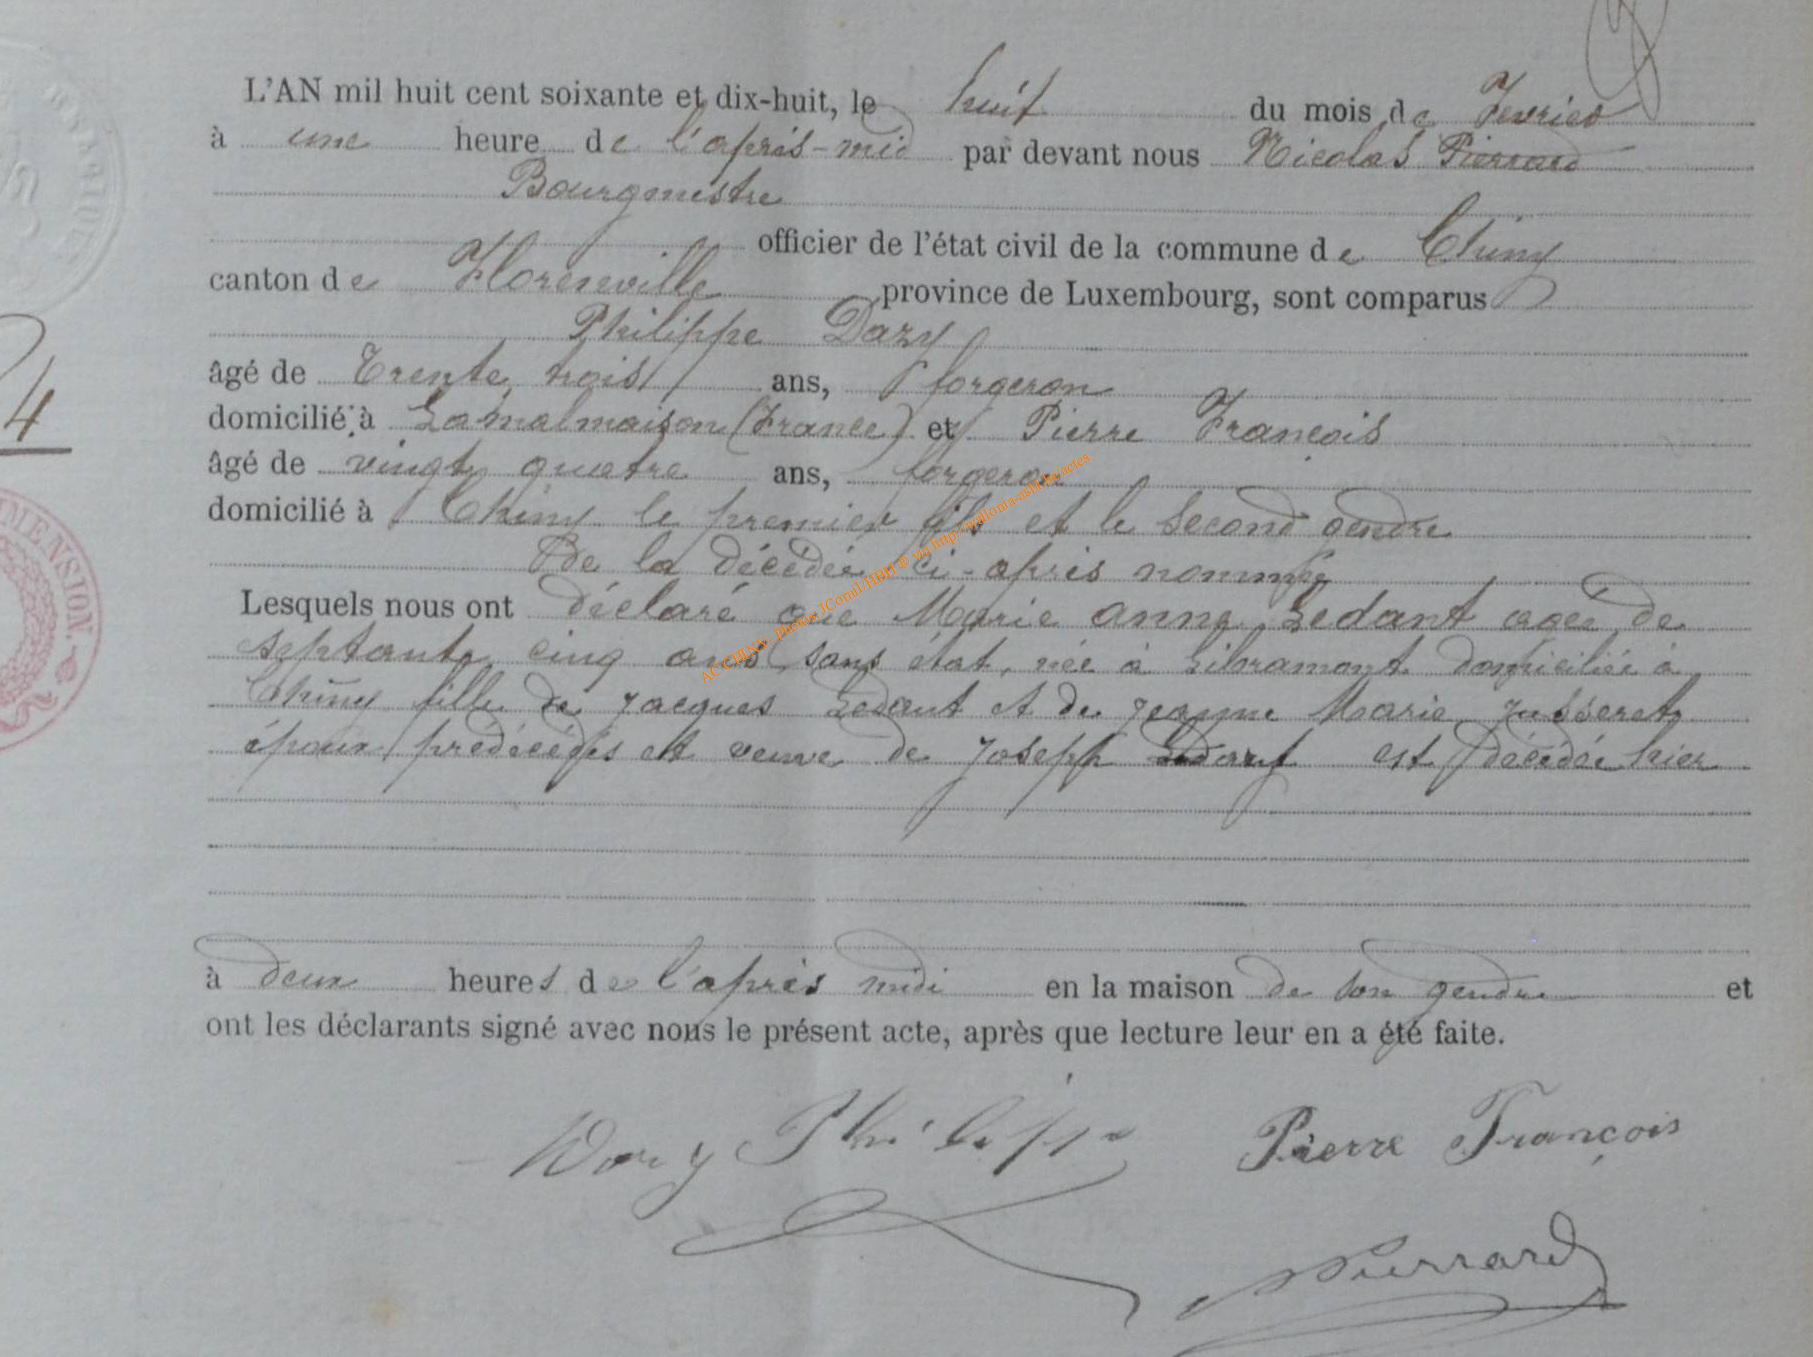 L'AN mil huit cent soixante et dix-huit, le huit du mois de Fevrier
à une heure de l'après-midi par devant nous Nicolas Pierrard
Bourgmestre
officier de l'état civil de la commune de Chiny
canton de Florenville province de Luxembourg, sont comparus
Philippe Dazy
âgé de Trente trois ans, forgeron
domicilié à Lamalmaison (France) et Pierre François
4
âgé de vingt quatre ans, forgeron
domicilié à Chiny le premier fils et le second gendre
De la décédée ci-après nommée
MENSION.
Lesquels nous ont déclaré que Marie anne Ledant agée de
septante cinq ans, sans état, née à Libramont domiciliée à
Chiny fille de Jacques Ledant et de Jeanne Marie Jusseret
époux prédécédés et veuve de Joseph est décédée hier
à deux heures de l'après midi en la maison de son gendre et
ont les déclarants signé avec nous le présent acte, après que lecture leur en a été faite.
Philippe Pierre François
Pierrard